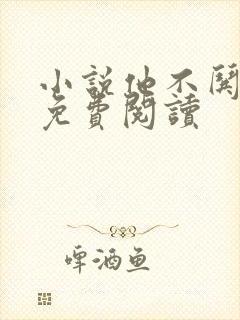 小說他不關
免費閱讀
啤酒鱼